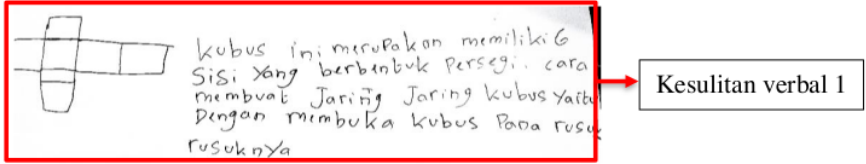 kubus ini merupakan memiliki 6
sisi yang berbentuk persegi. cara
membuat Jaring Jaring kubus yaitu
Dengan membuka kubus Pada rusuk
rusuknya
Kesulitan verbal 1